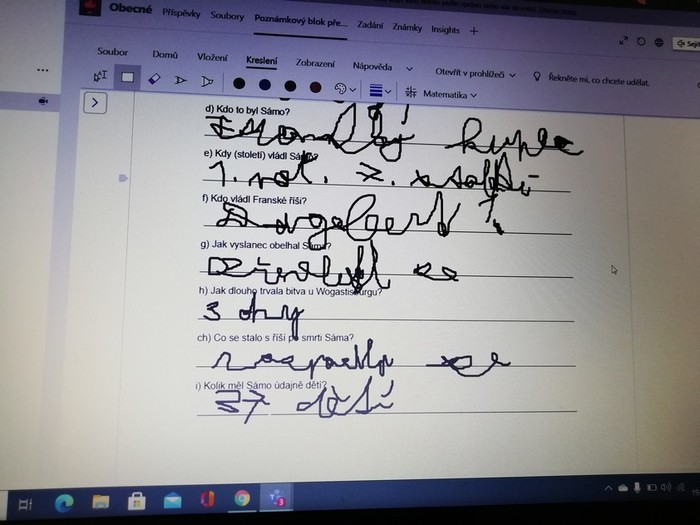 Obecné Příspěvky Soubory Poznámkový blok pře... Zadání Známky Insights +
Soubor Domů Vložení Kreslení Zobrazení Nápověda Otevřít v prohlížeči Řekněte mi, co chcete udělat.
Matematika
d) Kdo to byl Sámo?
kupec
e) Kdy (století) vládl Sámo?
1. rok. 7. století
f) Kdo vládl Franské říši?
Dagobert 1.
g) Jak vyslanec obelhal Sáma?
se
h) Jak dlouho trvala bitva u Wogastisburgu?
3 dny
ch) Co se stalo s říší po smrti Sáma?
rozpadla se
i) Kolik měl Sámo údajně dětí?
37 dětí